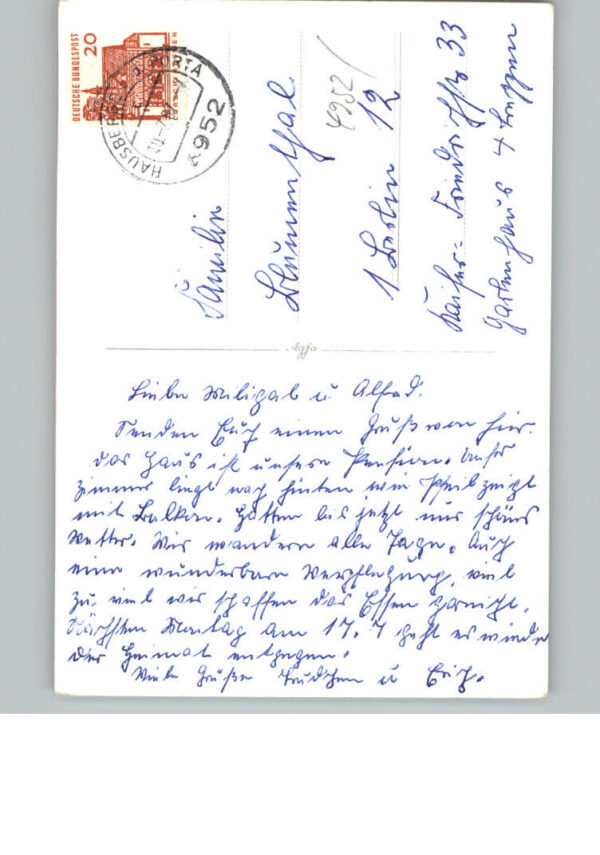 DEUTSCHE BUNDESPOST
20
HAUSBERGE
PORTA
4952
4952/
Familie
Blumenthal
1 Berlin 12
Kaiser-Friedrichstr 33
Gartenhaus 4 Treppen
Liebe u Alfred.
Senden Euch einen Gruß von hier.
das Haus ist unsere Pension. Unser
Zimmer liegt nach hinten wie Pfeil zeigt
mit Balkon. Hatten bis jetzt nur schöns
Wetter. Wir wandern alle Tage. Auch
eine wunderbare Verpflegung, viel
zu viel wir schaffen das Essen garnicht.
Nächsten Montag am 17. 7 geht es wieder
der Heimat entgegen.
Viele Grüße Trudchen u Erich.